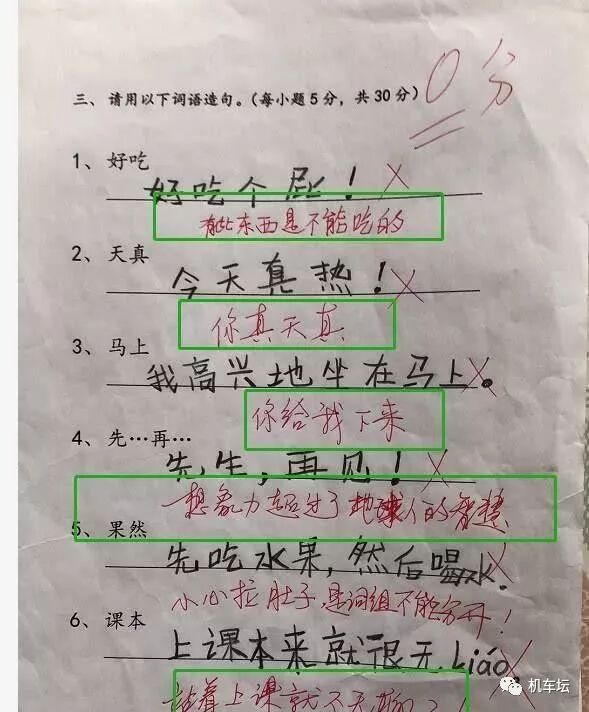 三、请用以下词语造句。(每小题5分,共30分)
0分
1、好吃
好吃个屁!
有些东西是不能吃的
2、天真
今天真热!
你真天真
3、马上
我高兴地坐在马上。
你给我下来
4、先…再…
先生,再见!
想象力超过了地球人的智慧
5、果然
先吃水果,然后喝水.
小心拉肚子,是词组不能分开!
6、课本
上课本来就很无Liáo.
站着上课就不无聊了!
机车坛